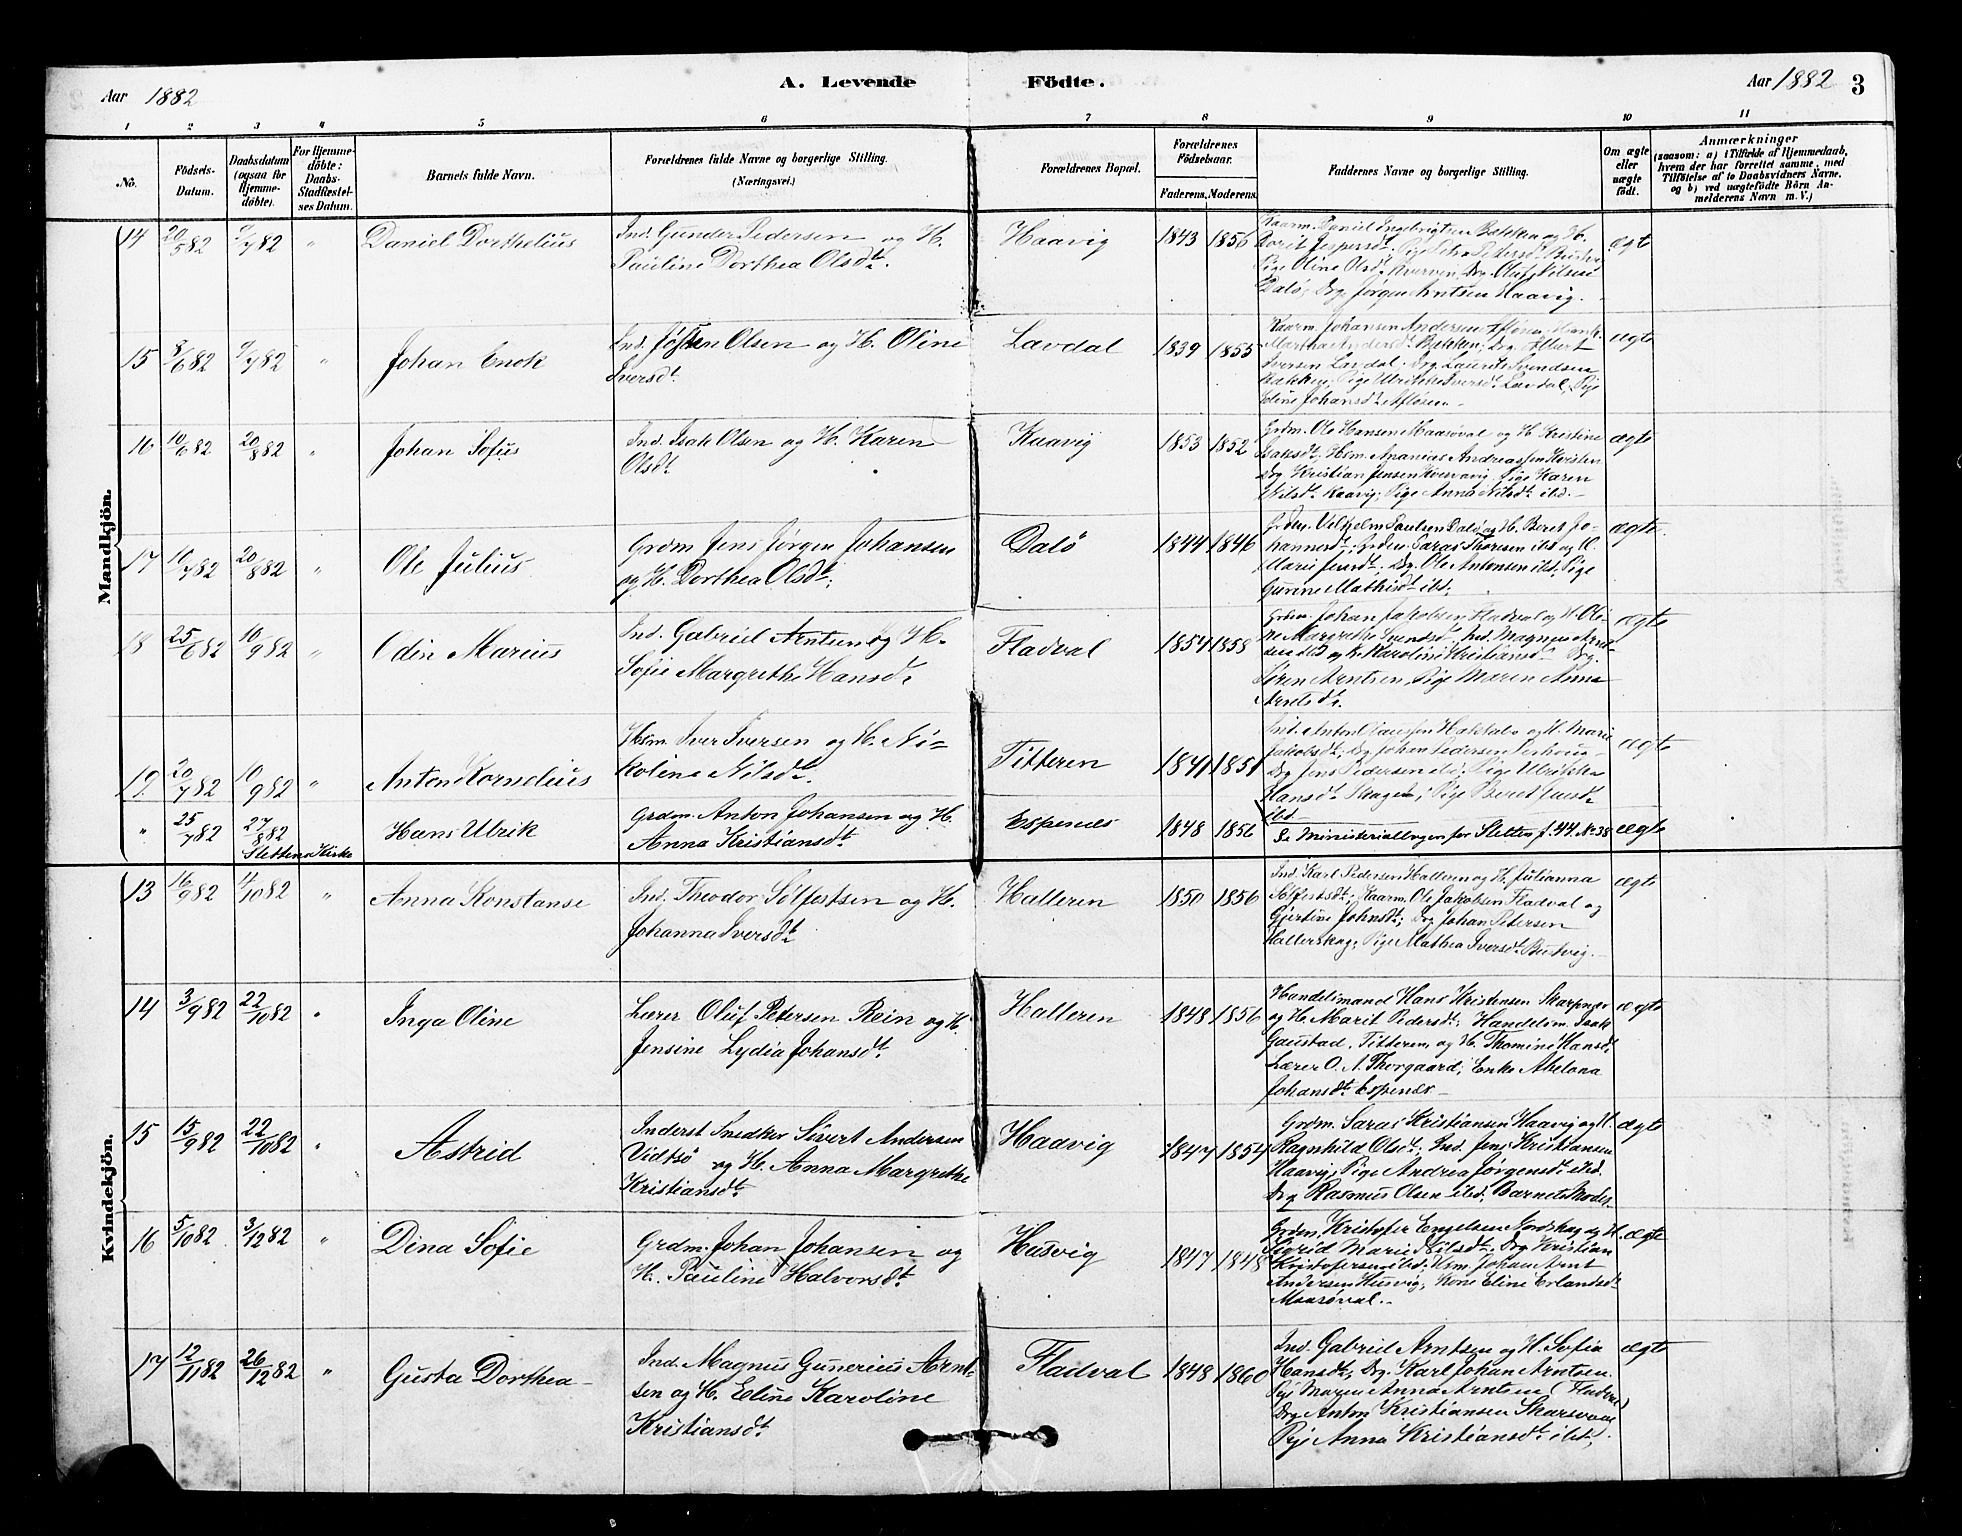 Aar 1882
A. Levende
Födte.
Aar 1882
3
1 2 3 4 5 6 7 8 9 10 11
No.
Födsels-
Datum.
Daabsdatum
(ogsaa for
Hjemme-
döbte).
For Hjemme-
döbte:
Daabs-
Stadfæstel-
ses Datum.
Barnets fulde Navn.
Forældrenes fulde Navne og borgerlige Stilling.
(Næringsvei.)
Forældrenes Bopæl.
Forældrenes
Födselsaar.
Faderens. Moderens.
Faddernes Navne og borgerlige Stilling.
Om ægte
eller
uægte
födt.
Anmærkninger
(saasom: a) i Tilfælde af Hjemmedaab,
hvem der har forrettet samme, med
Tilföielse af to Daabsvidners Navne,
og b) ved uægtefödte Börn An-
melderens Navn m. V.)
Mandkjön.
14 20/5 82 9/7 82 " Daniel Dorthelius
Ind. Gunder Pedersen og H.
Pauline Dorthea Olsdt.
Haavig 1843 1856
Dalö, Drg. Jörgen Arntsen Haavig.
ægte
15 8/6 82 9/7 82 " Johan Enok
Ind. Olsen og H. Oline
Iversdt.
Lavdal 1839 1855
Iversen Lavdal. Drg. Laurits Svendsen
Bakken; Pige Ulrikke Iversdt. Lavdal, Pige
ægte
16 10/6 82 20/8 82 " Johan Sofus
Ind. Isak Olsen og H. Karen
Olsdt.
Kaavig 1853 1852
Grdm. Ole Hansen Maasöval og H. Kristine
Isaksdt; Hsm. Ananias Andreassen
Drg. Kristian Jensen Pige Karen
Nilsdt. Kaavig; Pige Anna Nilsdt. ibd.
ægte
17 10/7 82 20/8 82 " Ole Julius
Grdm Jens Jörgen Johansen
og H. Dorthea Olsdt;
Dalö 1844 1846
Grdm. Vilhelm Paulsen Dalö og H. Beret Jo-
hannesdt; Grdm. Saras Thoresen ibd og H.
Marie Jensdt. Drg. Ole Antonsen ibd; Pige
Gurine Mathisdt ibd;
ægte
18 25/6 82 10/9 82 " Odin Marius
Ind. Gabriel Arntsen og H.
Sofie Margrethe Hansd.
Fladval 1854 1858
Grdm. Johan Jakobsen Fladval og H. Oli-
ne Margrethe Svendsdt, Ind. Magnus Arnt-
sen ibd og H. Karoline Kristiansd. Drg.
Sören Arntsen, Pige Maren Anna
Arntsdt.
ægte
19. 20/7 82 10/9 82 " Anton Kornelius
Hsm. Iver Iversen og H. Ni-
koline Nilsdt.
Titteren 1841 1851
Jakobsdt; Drg. Johan Pedersen
Drg. Jens Pedersen ibd; Pige Ulrikke
Hansdt. Skagen; Pige Beret Jensdt.
ibd.
ægte
" 25/7 82 27/8 82 Sletten Kirke Hans Ulrik
Grdm. Anton Johansen og H.
Anna Kristiansdt.
Espenes 1848 1856
Se Ministerialbogen for Sletten f. 44. No 38
ægte
Kvindekjön.
13 16/9 82 4/10 82 " Anna Konstanse
Ind. Theodor Sölfestsen og H.
Johanna Iversdt.
Halteren 1850 1856
Ind. Karl Pedersen Halteren og H. Julianna
Sölfestsdt; Kaarm. Ole Jakobsen Fladval og
Gjertine Johnsdt; Drg. Johan Petersen
Halterskag; Pige Mathea Iversdt. Bustvig.
ægte
14 3/9 82 22/10 82 " Inga Oline
Lærer Oluf Petersen Rein og H.
Jensine Lydia Johansdt.
Halteren 1848 1856
Handelsmand Hans Kristensen Skarpnæs
og H. Marit Pedersdt; Handelsm. Isak
Gaustad, Titteren, og H. Thomine Hansd.
Lærer O. A. Thorgaard; Enke Abelona
Johansdt. Espenæs
ægte
15 15/9 82 22/10 82 " Astrid
Inderst Snedker Sivert Andersen
Vidtsö og H. Anna Margrethe
Kristiansdt.
Haavig 1847 1854
Grdm. Saras Kristiansen Haavig og H.
Ragnhild Olsdt; Ind. Jens Kristiansen
Haavig, Pige Andrea Jörgensdt. ibd.
Drg Rasmus Olsen ibd; Barnets Moder.
ægte
16 5/10 82 3/12 82 " Dina Sofie
Grdm. Johan Johansen og
H. Pauline Halvorsdt.
Husvig 1847 1848
Grdm. Kristofer Engelsen Nordskag og H.
Sigrid Marie Nilsdt. Drg. Kristian
Kristofersen ibd. Hsm. Johan Arnt
Andersen Husvig, Kone Eline Erlandsdt
Maasöval.
ægte
17 12/11 82 26/12 82 " Gusta Dorthea
Ind. Magnus Gunerius Arnt-
sen og H. Eline Karoline
Kristiansdt.
Fladval 1848 1860
Ind. Gabriel Arntsen og H. Sofia
Hansdt; Drg. Karl Johan Arntsen.
Pige Maren Anna Arntsen (Fladval)
Drg. Anton Kristiansen Skarsvaag
Pige Anna Kristiansdt. ibd.
ægte